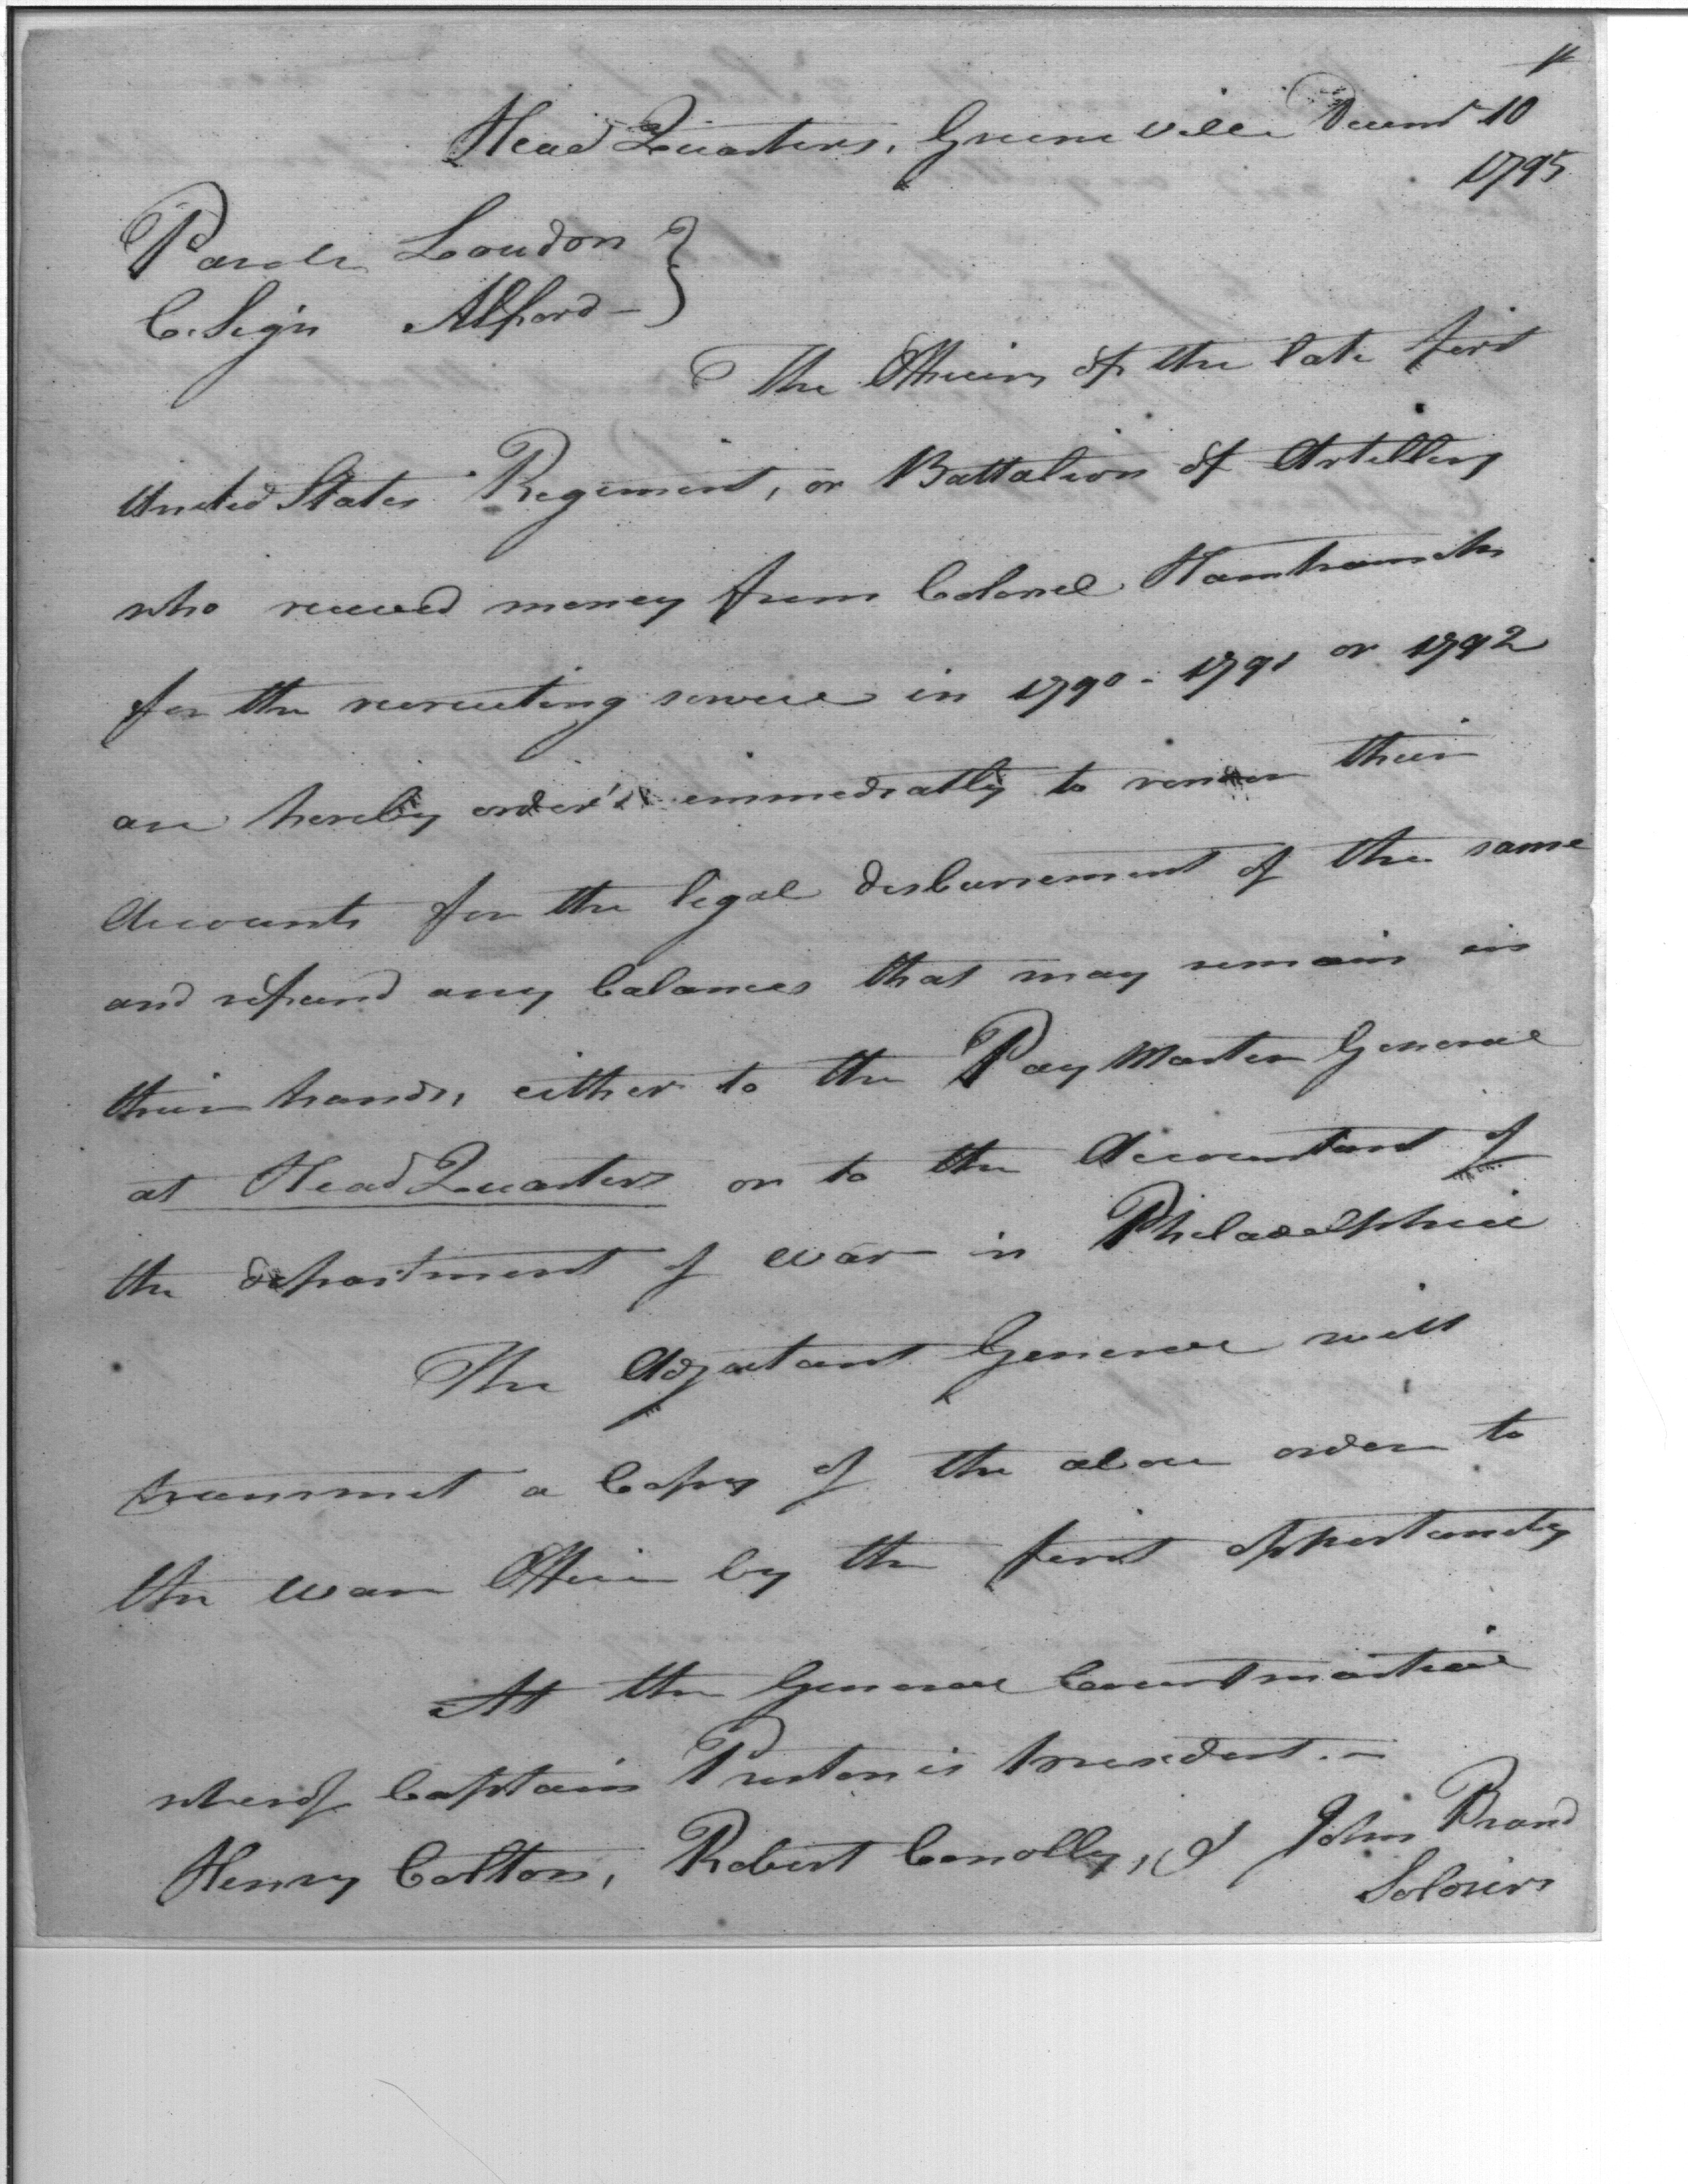 Head Quarters, Greene ville Decemr 10
1795
Parole Loudon }
C. Sign Alford - }
The Officers of the late first
United States Regiment, or Battalion of Artillery
who received money from Colonel Hamtramck
for the recruiting service in 1790 - 1791 or 1792
are hereby order'd immediatly to render their
Accounts for the legal disbursement of the same
and refund any balances that may remain in
their hands, either to the Pay Master General
at Head Quarters or to the Accountant of
the department of war in Philadelphia
The Adjutant General will
transmit a Copy of the above order to
the war Office by the first opportunity
At the General Courtmartial
whereof Captain Preston is President. -
Henry Colton, Robert Conolly, & John Brand
Soldiers